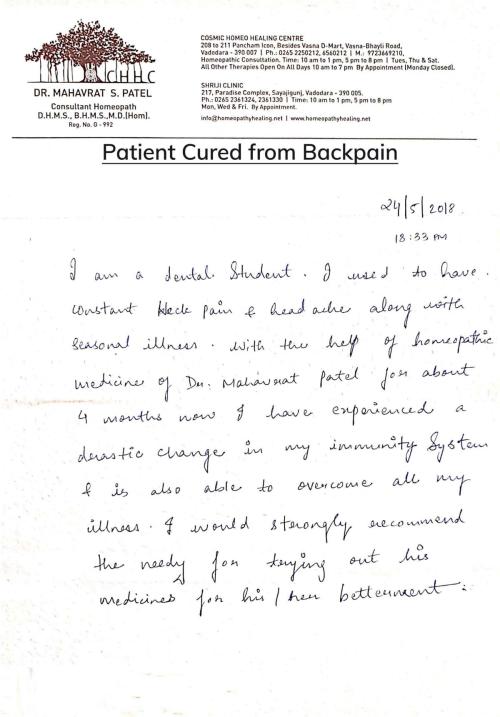 COSMIC HOMEO HEALING CENTRE
208 to 211 Pancham Icon, Besides Vasna D-Mart, Vasna-Bhayli Road,
Vadodara - 390 007 | Ph.: 0265 2250212, 6560212 | M.: 9723669210,
Homeopathic Consultation. Time: 10 am to 1 pm, 5 pm to 8 pm | Tues, Thu & Sat.
All Other Therapies Open On All Days 10 am to 7 pm By Appointment (Monday Closed).
CHHC
SHRIJI CLINIC
217, Paradise Complex, Sayajigunj, Vadodara - 390 005.
Ph.: 0265 2361324, 2361330 | Time: 10 am to 1 pm, 5 pm to 8 pm
Mon, Wed & Fri. By Appointment.
info@homeopathyhealing.net | www.homeopathyhealing.net
DR. MAHAVRAT S. PATEL
Consultant Homeopath
D.H.M.S., B.H.M.S.,M.D.(Hom).
Reg. No. G - 992
Patient Cured from Backpain
24/5/2018
18:33 PM
I am a dental Student. I used to have
constant Neck pain & head ache along with
seasonal illness. with the help of homeopathic
medicine of Dr. Mahavrat Patel for about
4 months now I have experienced a
drastic change in my immunity System
& is also able to overcome all my
illness. I would strongly recommend
the needy for trying out his
medicines for his / her betterment.